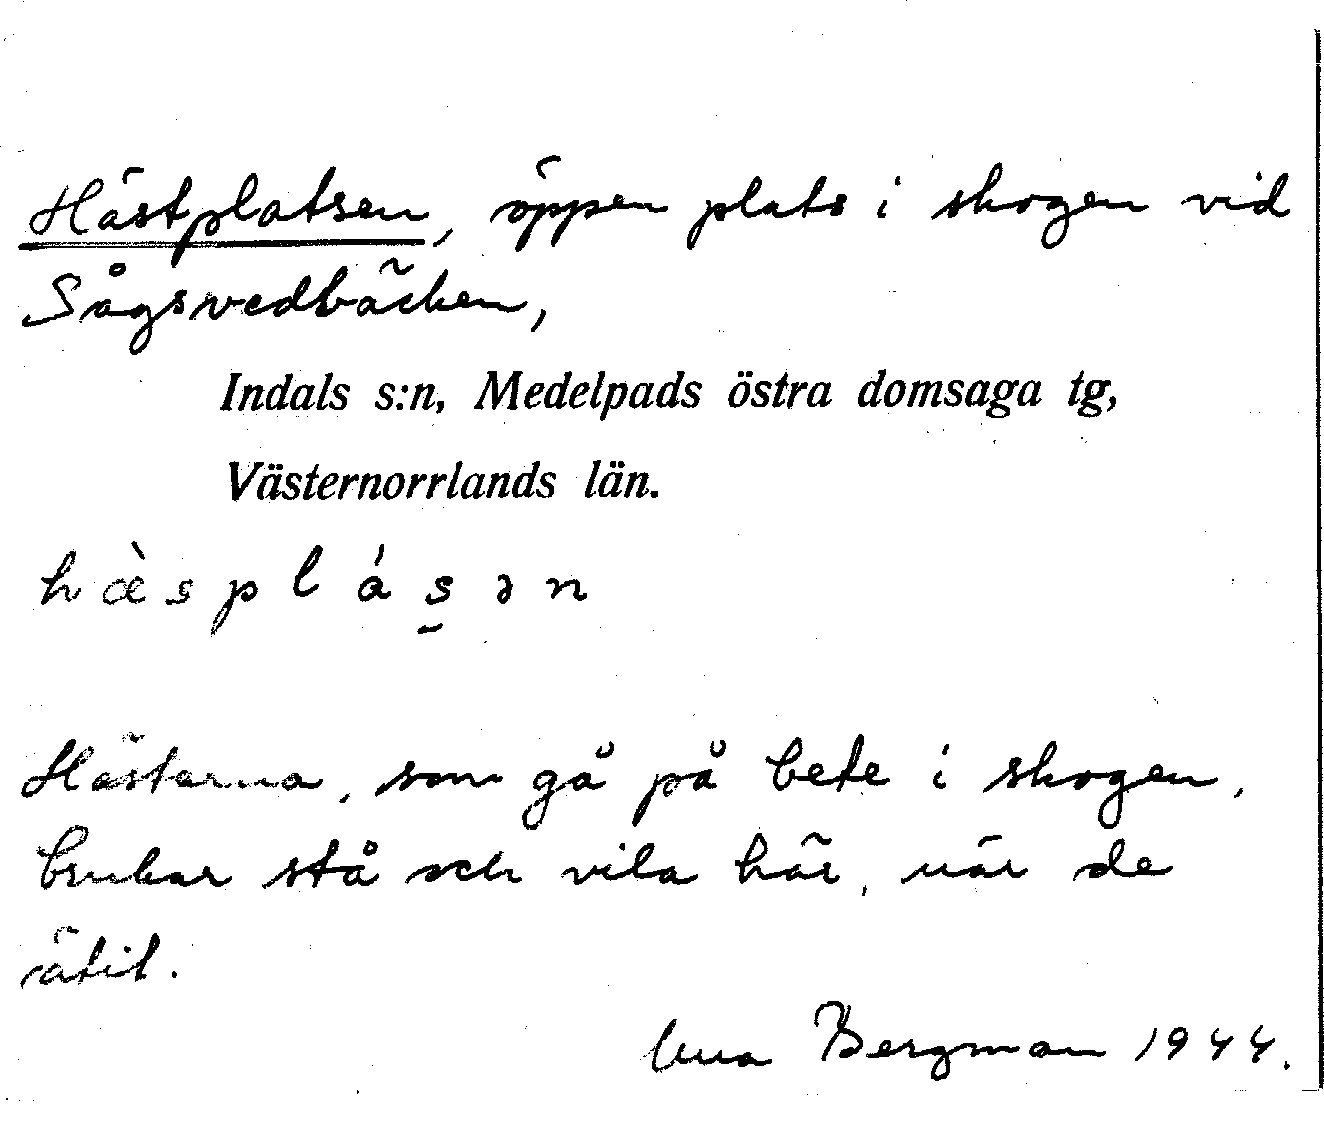 Hästplatsen, öppen plats i skogen vid
Sågsvedbäcken,
Indals s:n, Medelpads östra domsaga tg,
Västernorrlands län.
hæ̀splás̠ən
Hästarna, som gå på bete i skogen,
brukar stå och vila här, när de
ätit.
Bergman 1944.